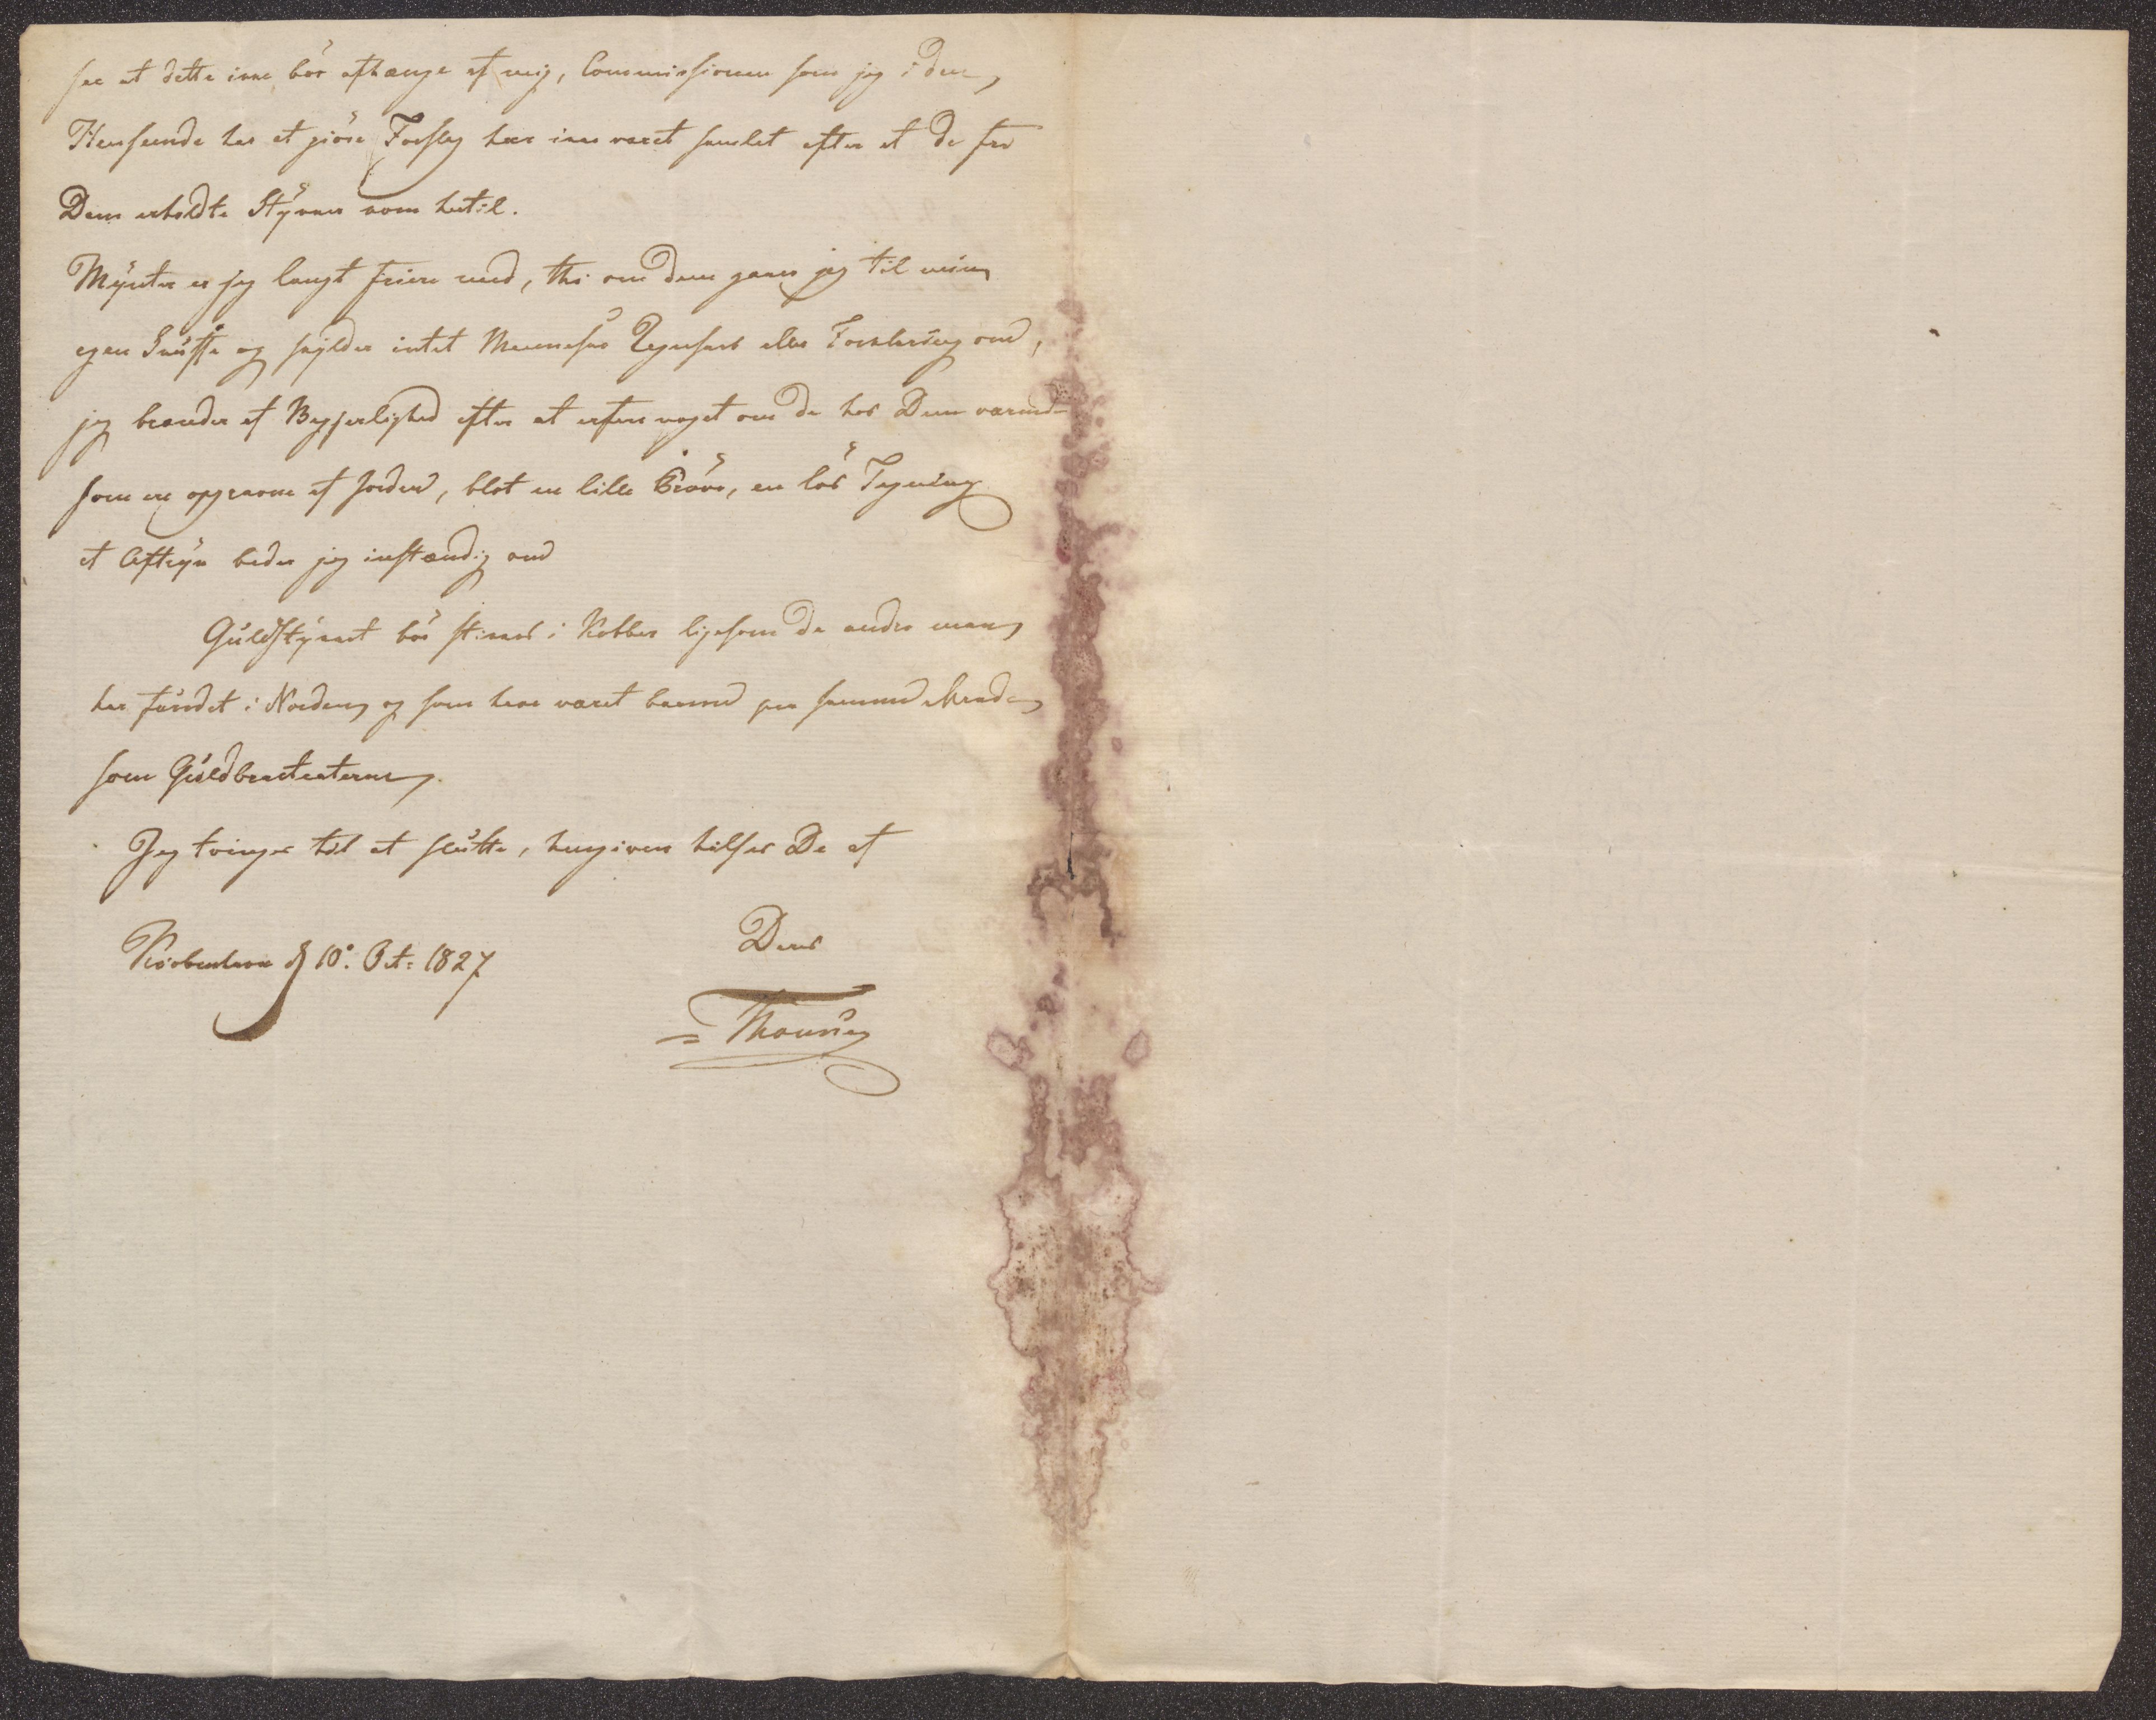 see at dette ikke bör afhænge af mig, Commissionen som jeg i den
Henseende har at giöre Forslag har ikke været samlet efter at de fra
Dem erholdte Stykker kom hertil.
Mynter er jeg langt friere med, thi om dem gaaer jeg til min
egen Skuffe og skylder intet Menneske Regnskab eller Forklaring om,
jeg brænder af Begjerlighed efter at erfare noget om de hos Dem værende
som ere opgravne af Jorden, blot en lille Pröve, en lös Tegning
et Aftryk beder jeg inständig om
Guldstykket bör stikkes i Kobber ligesom de andre man
har fundet i Norden og som have været baarne paa samme Maade
som Guldbracteaterne.
Jeg tvinges til at slutte, hengiven hilses De af
Kiöbenhavn d 10. Oct: 1827
Deres
Thomsen